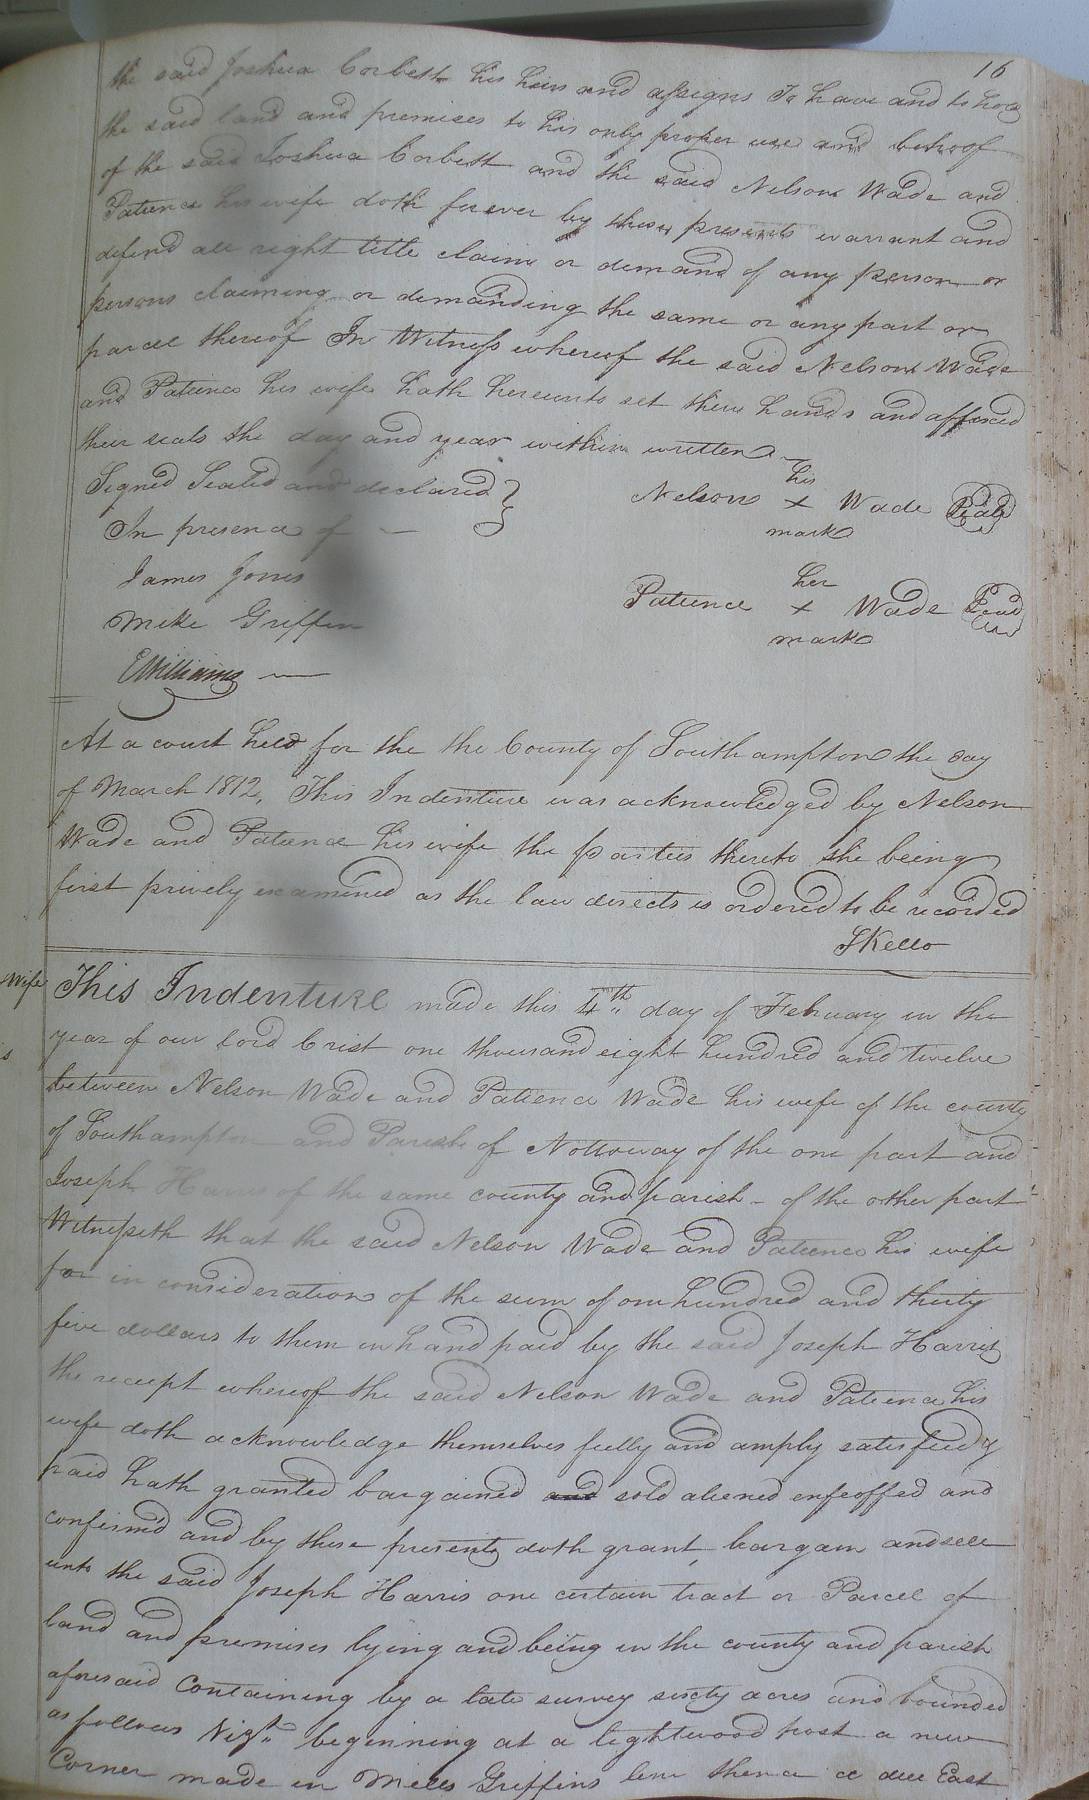 16
the said Joshua Corbett his heirs and assigns To have and to hold
the said land and premises to his only proper use and behoof
of the said Joshua Corbett and the said Nelson Wade and
Patience his wife doth forever by these presents warrant and
defend all right title claim or demand of any person or
persons claiming or demanding the same or any part or
parcel thereof In Witness whereof the said Nelson Wade
and Patience his wife hath hereunto set their hands and affixed
their seals the day and year within written
Signed Sealed and declared
In presence of
James Jones
Mike Griffin
EWilliams
his
Nelson x Wade Seal
mark
her
Patience x Wade Seal
mark
At a court held for the the County of Southampton the day
of March 1812, This Indenture was acknowledged by Nelson
Wade and Patience his wife the parties thereto she being
first prively examined as the law directs is ordered to be recorded
SKello
Wife
s
This Indenture made this 4th day of February in the
year of our lord Crist one thousand eight hundred and twelve
between Nelson Wade and Patience Wade his wife of the county
of Southampton and Parish of Nottoway of the one part and
Joseph Harris of the same county and parish - of the other part
Witnesseth that the said Nelson Wade and Patience his wife
for in consideration of the sum of one hundred and thirty
five dollars to them in hand paid by the said Joseph Harris
the receipt whereof the said Nelson Wade and Patience his
wife doth acknowledge themselves fully and amply satisfied &
paid hath granted bargained and sold aliened enfeoffed and
confirmd and by these presents doth grant, bargain and sell
unto the said Joseph Harris one certain tract or Parcel of
land and premises lying and being in the county and parish
aforesaid Containing by a late survey sixty acres and bounded
as follows Vizt. beginning at a lightwood post a new
Corner made in Mills Griffins line thence a due East